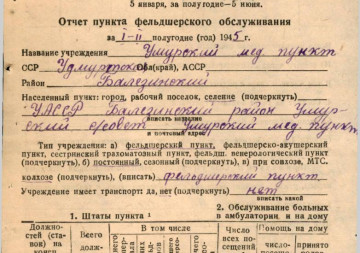 5 января, за полугодие—5 июня.
Отчет пункта фельдшерского обслуживания
за I-II полугодие (год) 1945 г.
Название учреждения Умурский мед пункт
ССР Удмуртская обл(край), АССР
Район Балезинский
Населенный пункт: город, рабочий поселок, селение (подчеркнуть)
УАССР Балезинский район Умур-
вписать название
ский с/совет Умурский мед пункт
и почтовый адрес
Тип учреждения: а) фельдшерский пункт, фельдшерско-акушерский
пункт, сестринский трахоматозный пункт, фельдш. венерологический пункт
(подчеркнуть) б) постоянный, сезонный (подчеркнуть), в) при совхозе, МТС,
колхозе (подчеркнуть), (вписать) фельдшерский пункт
Учреждение имеет транспорт да, нет (подчеркнуть) нет
вписать какой
1. Штаты пункта ¹
2. Обслуживание больных
в амбулатории и на дому
Должно-
стей (ста-
вок) на
конец
Всего
долж-
В том числе
Число
всех по-
сещений
Помощь на дому
число
принято